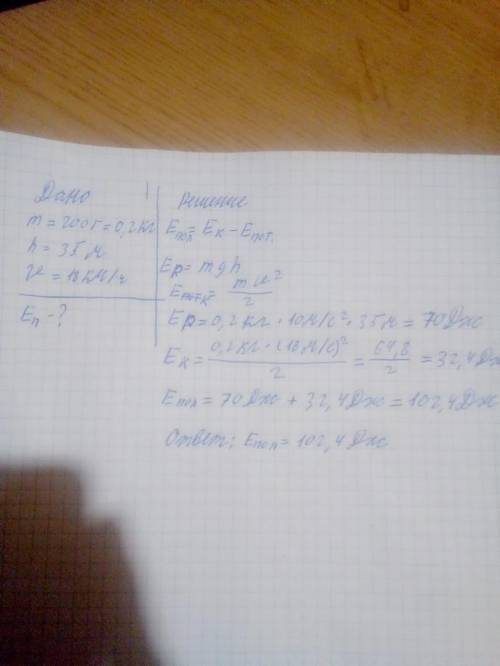 Дано
m = 200г = 0,2 кг
h = 35 м
υ = 18 км/ч
Eп - ?
Решение
Eпол = Eк - Eпот.
Ep = mgh
Eк = m υ²/2
Ep = 0,2 кг · 10 м/с² · 35 м = 70 Дж
Eк = 0,2 кг · (18 м/с)²/2 = 64,8/2 = 32,4 Дж
Eпол = 70 Дж + 32,4 Дж = 102,4 Дж
Ответ: Eпол = 102,4 Дж